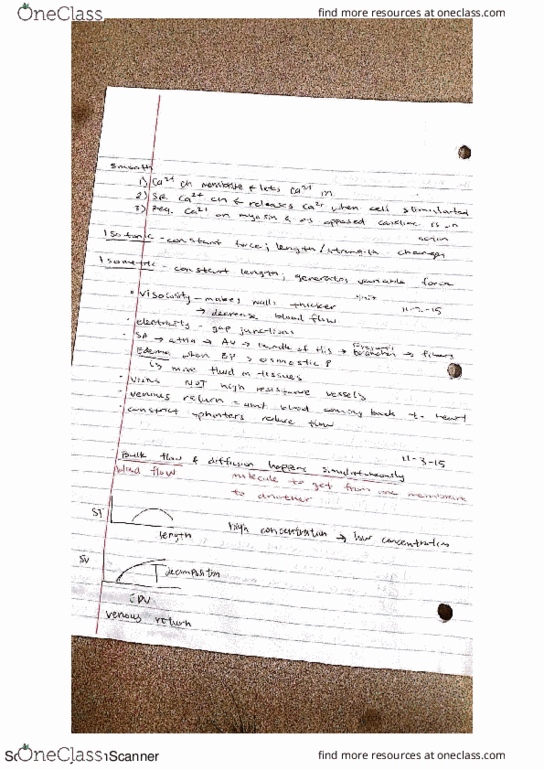 OneClass
find more resources at oneclass.com
smooth
1) Ca2+ ch membrane & lets Ca2+ in
2) SR Ca2+ ch & releases Ca2+ when cell stimulated
3) Reg. Ca2+ on myosin & as opposed cardiac is on
actin
Isotonic - constant force; length/strength changes
Isometric - constant length; generates variable force
11-2-15
• viscosity - makes walls thicker
→ decrease blood flow
• electricity - gap junctions
• SA → atria → AV → bundle of His → branches → fibers
Edema when BP > osmostic P
↳ more fluid in tissues
• veins NOT high resistance vessels
• venous return = amt blood coming back to heart
constrict sphinters reduce flow
11-3-15
Bulk flow & diffusion happens simultaneously
blood flow molecule to get from one membrane
to another
ST
length
high concentration → low concentration
SV
EDV
venous return
OneClass
Scanner
find more resources at oneclass.com